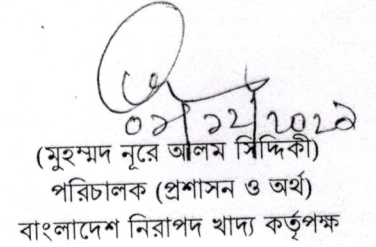 ০১/১২/২০২১
(মুহম্মদ নূরে আলম সিদ্দিকী)
পরিচালক (প্রশাসন ও অর্থ)
বাংলাদেশ নিরাপদ খাদ্য কর্তৃপক্ষ